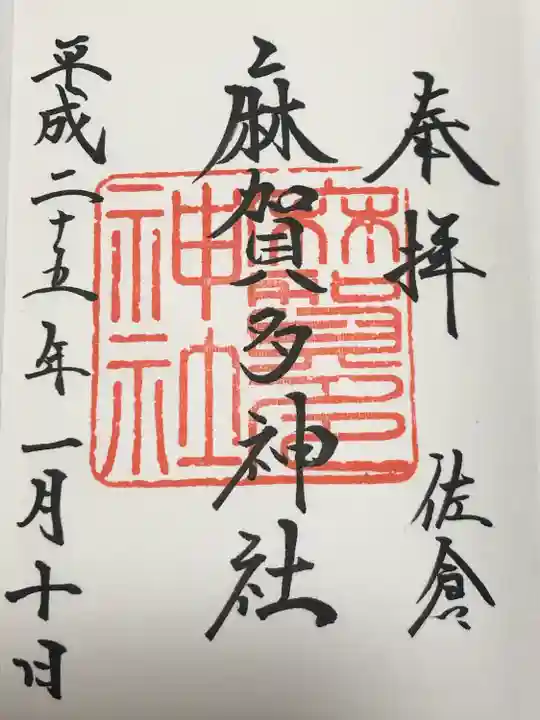 奉拝
佐倉
麻賀多神社
平成二十五年一月十日
神社